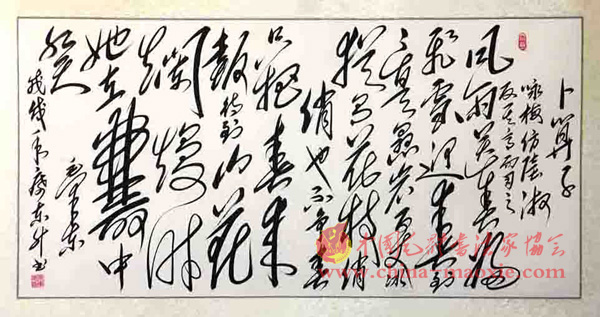 卜算子
咏梅仿陆游
反其意而用之
风雨送春归
飞雪迎春到
已是悬崖百丈冰
犹有花枝俏
俏也不争春
只把春来
报待到山花
烂熳时
她在丛中
笑
毛泽东
戊戌年 东升书
中国毛体书法家协会
www.china-maoxie.com